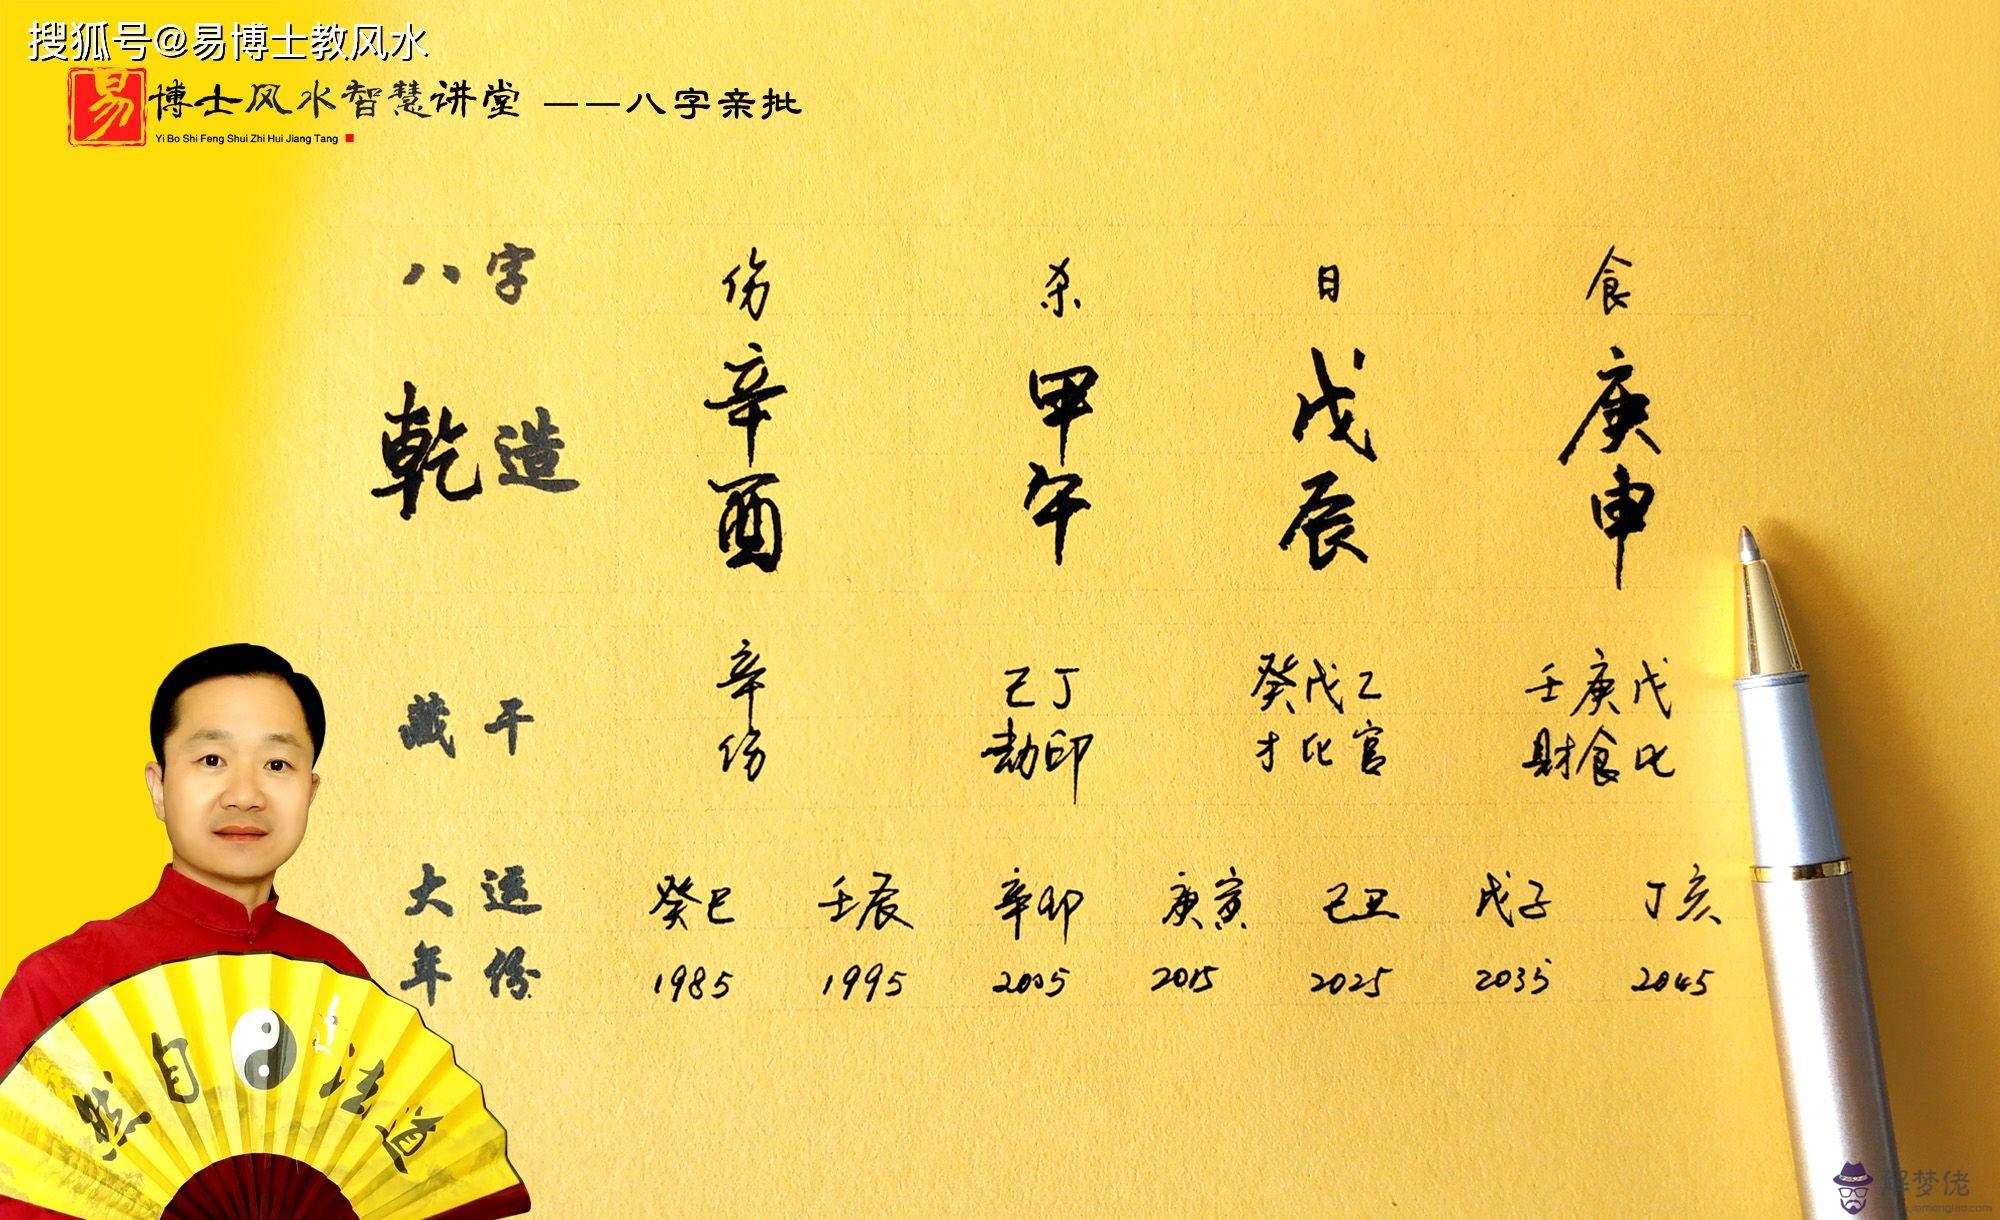 搜狐号@易博士教风水
易博士风水智慧讲堂 ——八字亲批
Yi Bo Shi Feng Shui Zhi Hui Jiang Tang
八字 伤 杀 日 食
乾造 辛 甲 戊 庚
酉 午 辰 申
藏干 辛 己丁 癸戊乙 壬庚戊
伤 劫印 才比官 财食比
大运 癸巳 壬辰 辛卯 庚寅 己丑 戊子 丁亥
年份 1985 1995 2005 2015 2025 2035 2045
然自法道
解梦佬